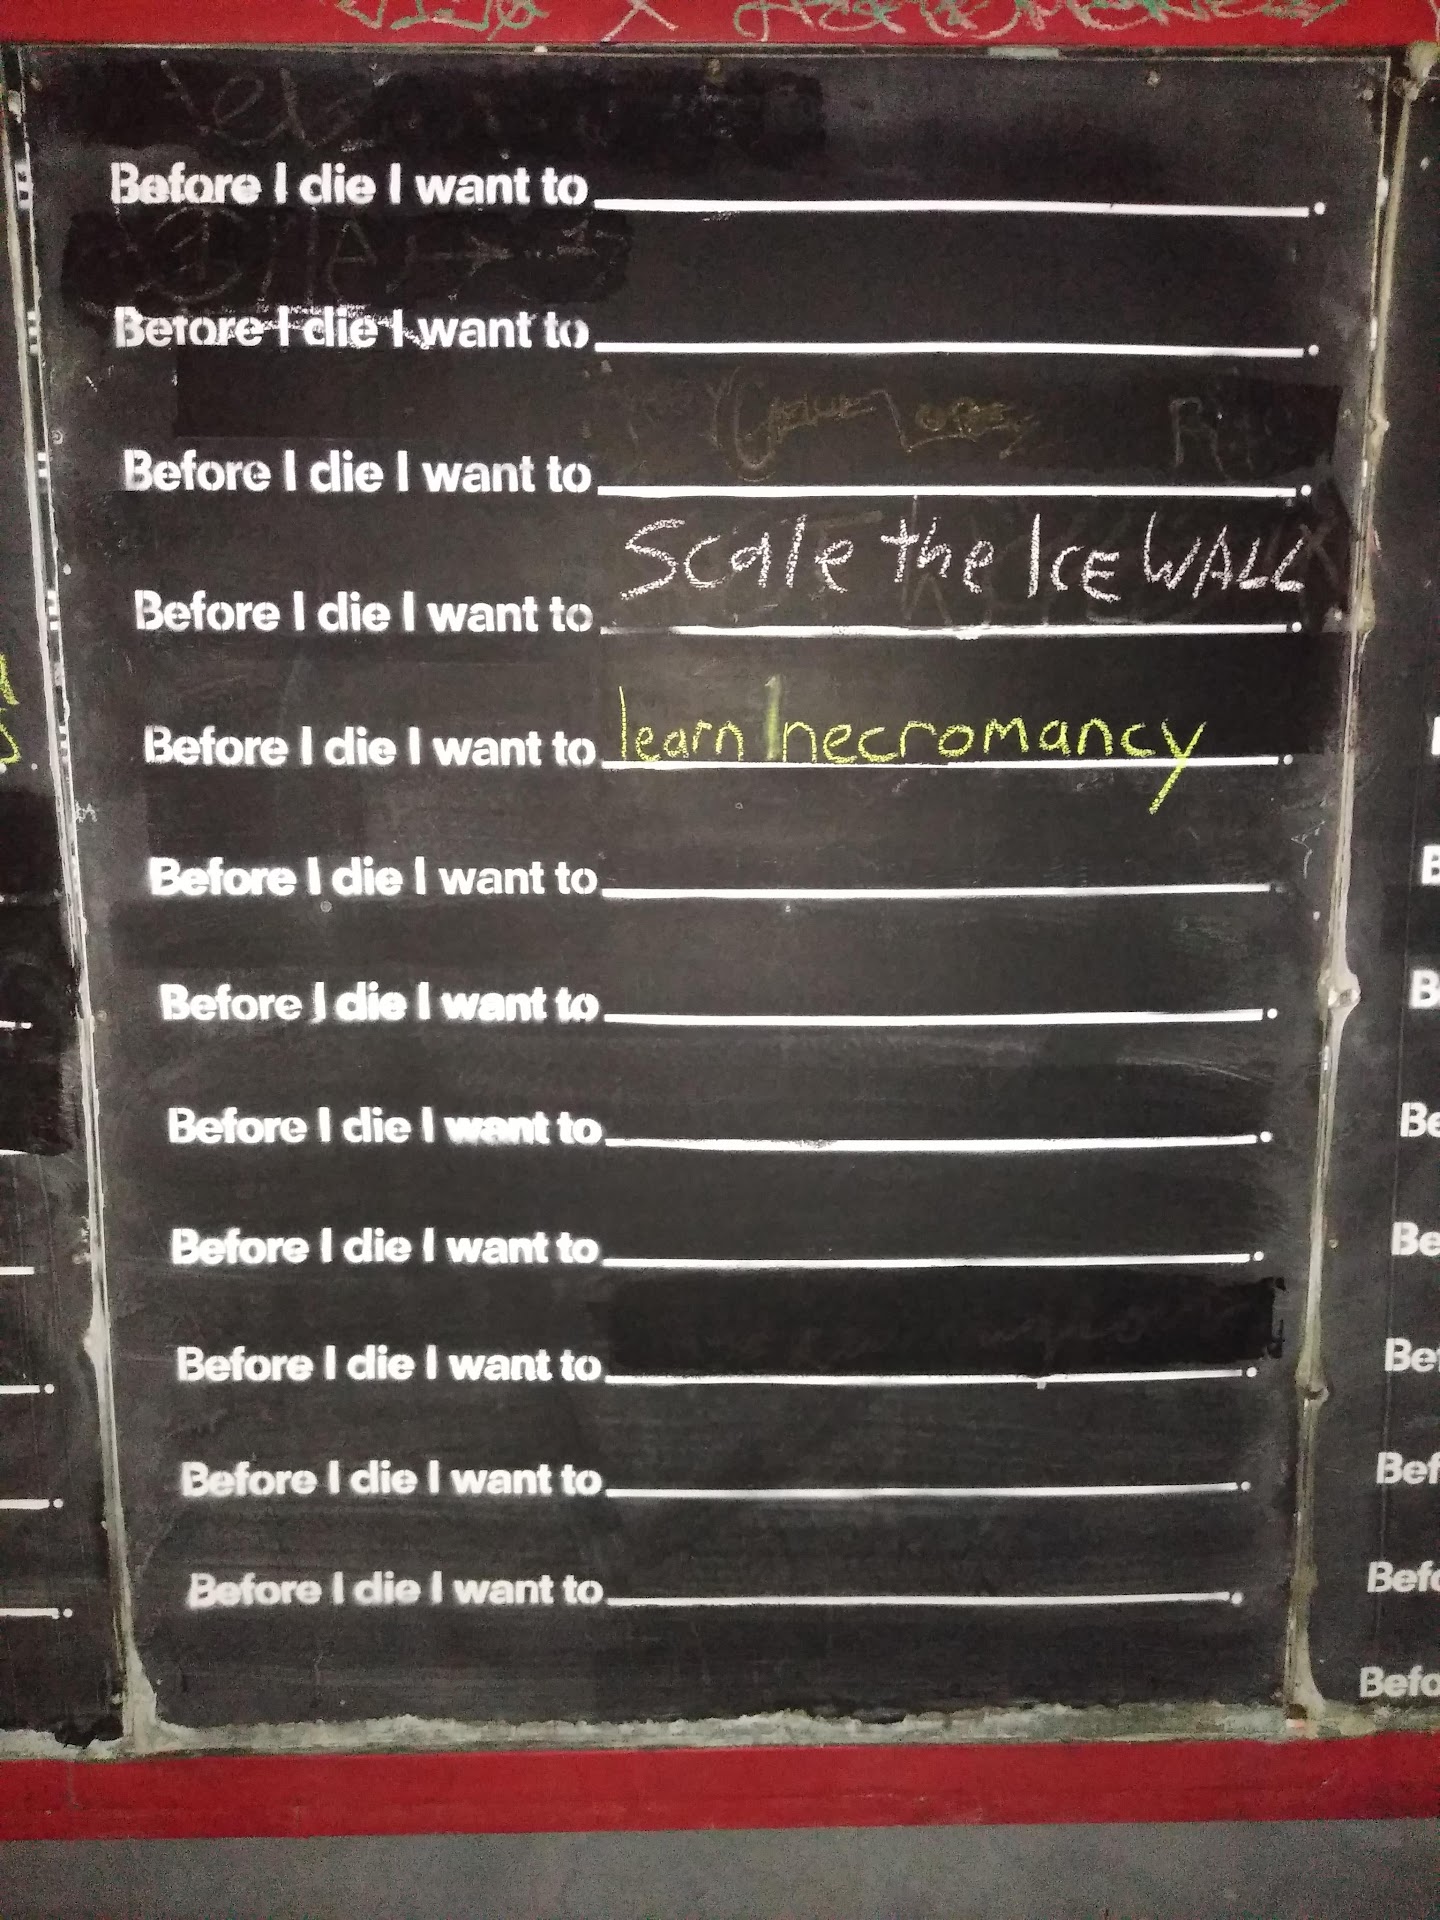 Before I die I want to
Before I die I want to
Before I die I want to
Before I die I want to Scale the ICE WALL
Before I die I want to learn necromancy
Before I die I want to
Before I die I want to
Before I die I want to
Before I die I want to
Before I die I want to
Before I die I want to
Before I die I want to